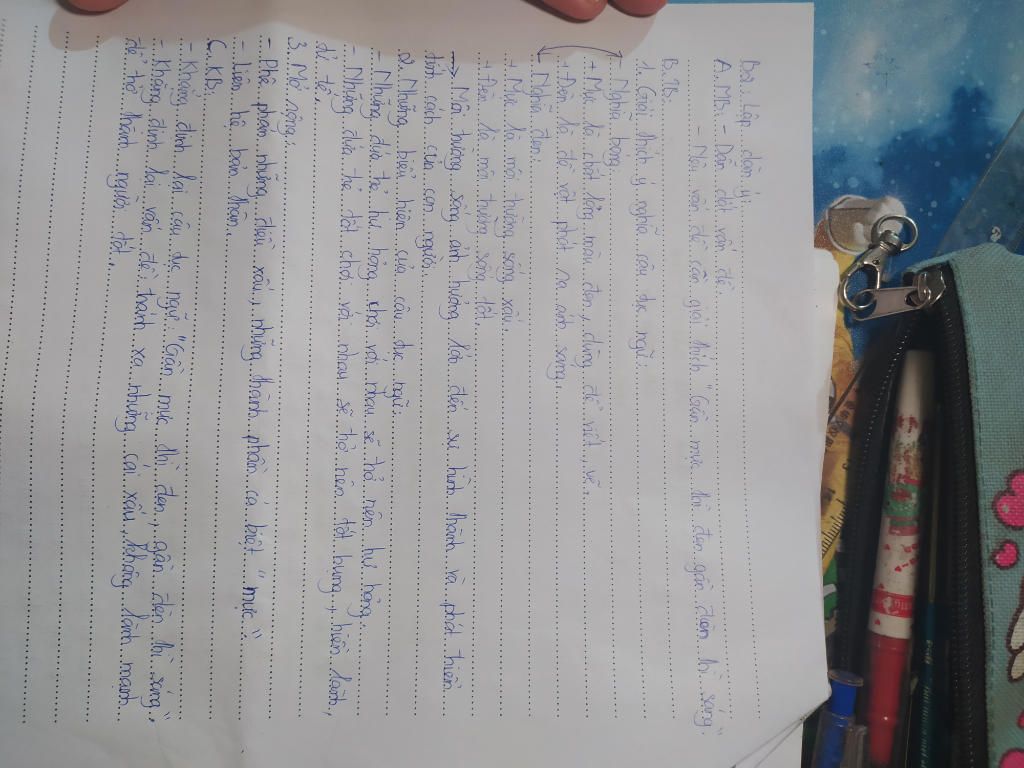 Bài: Lập dàn ý:
A. MB: - Dẫn dắt vấn đề.
- Nêu vấn đề cần giải thích "Gần mực thì đen gần đèn thì sáng".
B. TB:
1. Giải thích ý nghĩa câu tục ngữ:
- Nghĩa bóng:
+ Mực là chất lỏng màu đen, dùng để viết, vẽ.
+ Đèn là đồ vật phát ra ánh sáng.
- Nghĩa đen:
+ Mực là môi trường sống xấu.
+ Đèn là môi trường sống tốt.
→ Môi trường sống ảnh hưởng lớn đến sự hình thành và phát triển
tính cách của con người.
2. Những biểu hiện của câu tục ngữ:
- Những đứa trẻ hư hỏng chơi với nhau sẽ trở nên hư hỏng.
- Những đứa trẻ tốt chơi với nhau sẽ trở nên tốt bụng, hiền lành,
tử tế.
3. Mở rộng:
- Phê phán những điều xấu, những thành phần cá biệt "mực".
- Liên hệ bản thân.
C. KB:
- Khẳng định lại câu tục ngữ: "Gần mực thì đen, gần đèn thì sáng".
- Khẳng định lại vấn đề tránh xa những cái xấu, không lành mạnh
để trở thành người tốt.